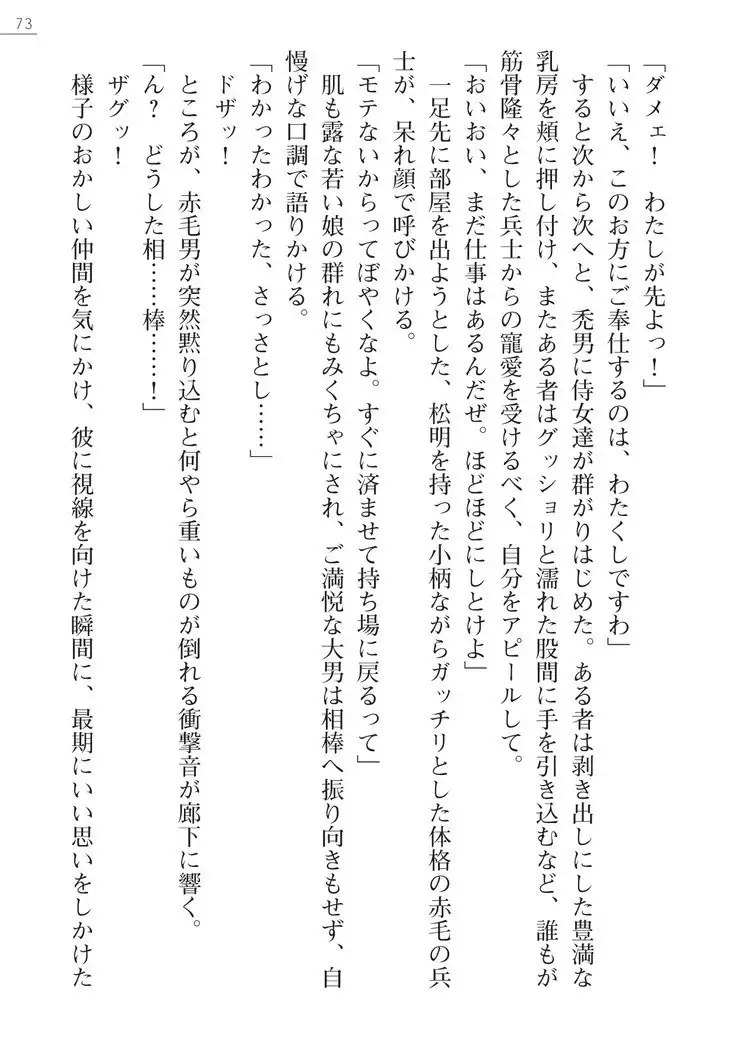 73
「ダメェ！　わたしが先よっ！」
「いいえ、このお方にご奉仕するのは、わたくしですわ」
　すると次から次へと、禿男に侍女達が群がりはじめた。ある者は剥き出しにした豊満な
乳房を頬に押し付け、またある者はグッショリと濡れた股間に手を引き込むなど、誰もが
筋骨隆々とした兵士からの寵愛を受けるべく、自分をアピールして。
「おいおい、まだ仕事はあるんだぜ。ほどほどにしとけよ」
　一足先に部屋を出ようとした、松明を持った小柄ながらガッチリとした体格の赤毛の兵
士が、呆れ顔で呼びかける。
「モテないからってぼやくなよ。すぐに済ませて持ち場に戻るって」
　肌も露な若い娘の群れにもみくちゃにされ、ご満悦な大男は相棒へ振り向きもせず、自
慢げな口調で語りかける。
「わかったわかった、さっさとし……」
　ドザッ！
　ところが、赤毛男が突然黙り込むと何やら重いものが倒れる衝撃音が廊下に響く。
「ん？　どうした相……棒……！」
　ザグッ！
　様子のおかしい仲間を気にかけ、彼に視線を向けた瞬間に、最期にいい思いをしかけた